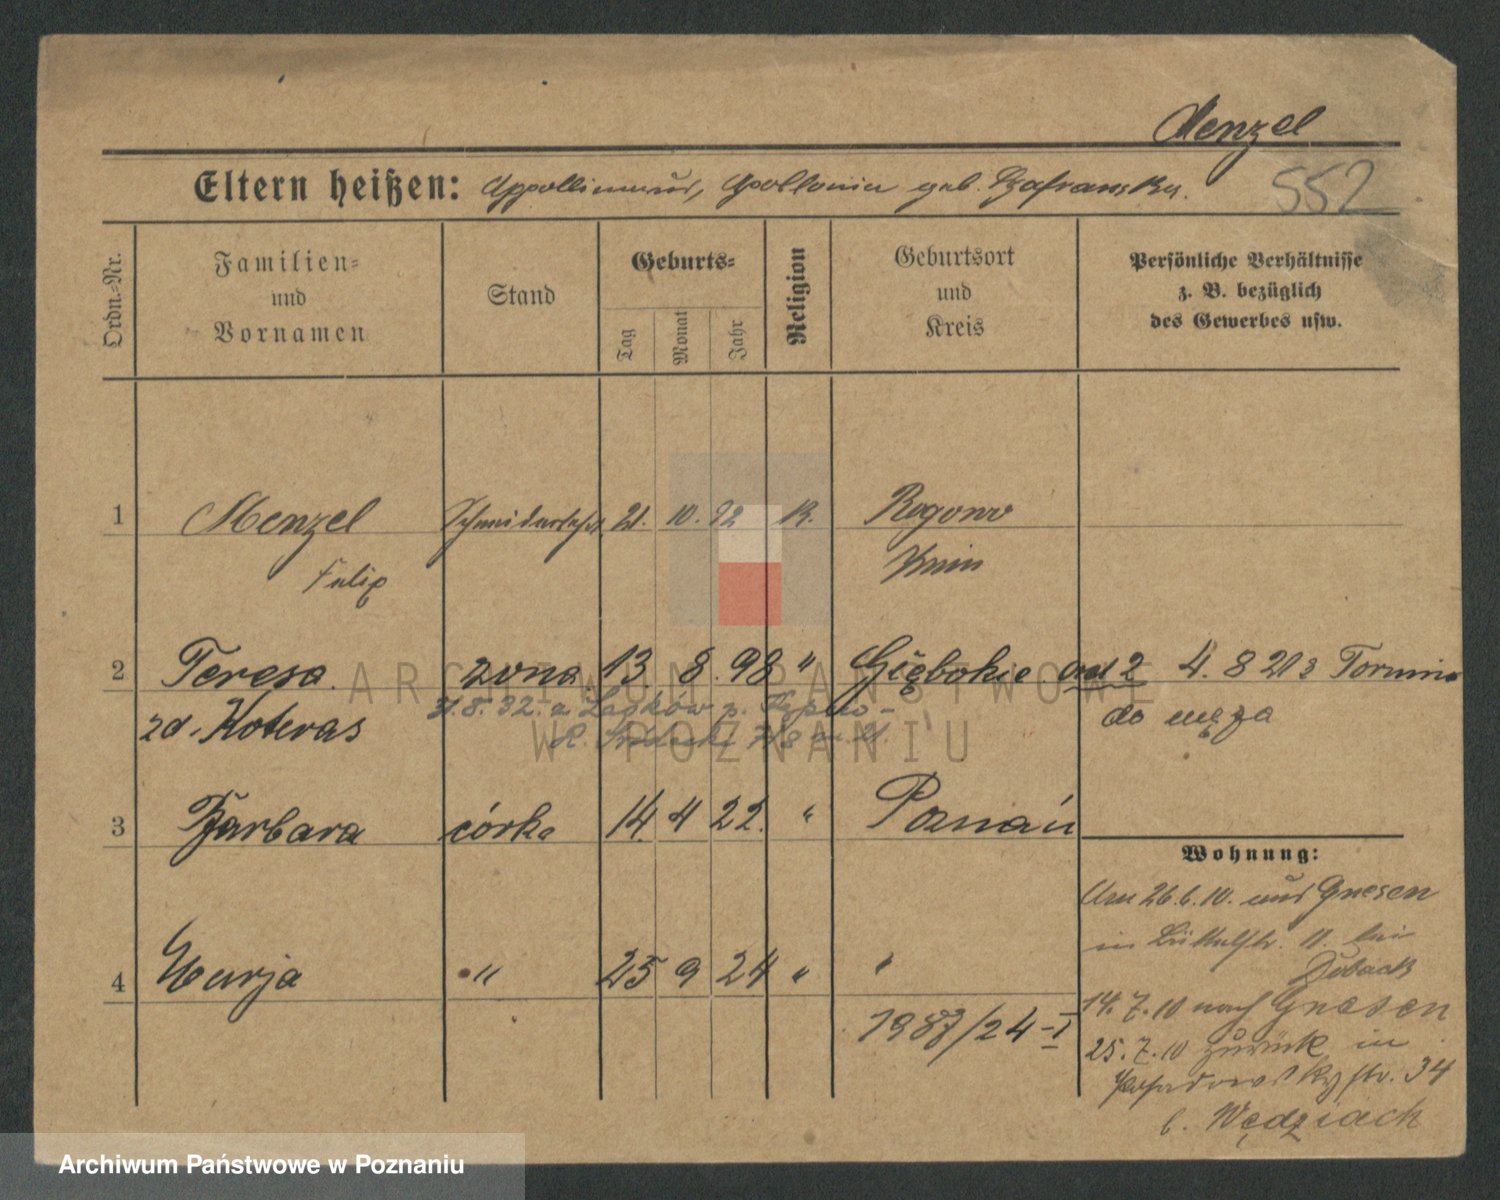 Menzel
552
Eltern heißen: Appollinaus, Apollonia geb. Szafranska.
Ordn.=Nr.
Familien=
und
Vornamen
Stand
Geburts=
Tag
Monat
Jahr
Religion
Geburtsort
und
Kreis
Persönliche Verhältnisse
z. B. bezüglich
des Gewerbes usw.
1 Menzel 21. 10. 92 K. Rogowo
Filip Znin
2 Teresa żona 13. 8. 98 " Głębokie od 2 4. 8 21 z Torunia
zd. Koteras do męża
3 Barbara córka 14. 4 22. " Poznań
4 Marja " 25 9 24 " "
1987/24-I
Wohnung:
Am 26.6.10. aus Gnesen
in 11. bei
14.7.10 nach Gnesen
25.7.10 zurück in
Posadowskystr. 34
b. Wędziach
ARCHIWUM PAŃSTWOWE
W POZNANIU
Archiwum Państwowe w Poznaniu